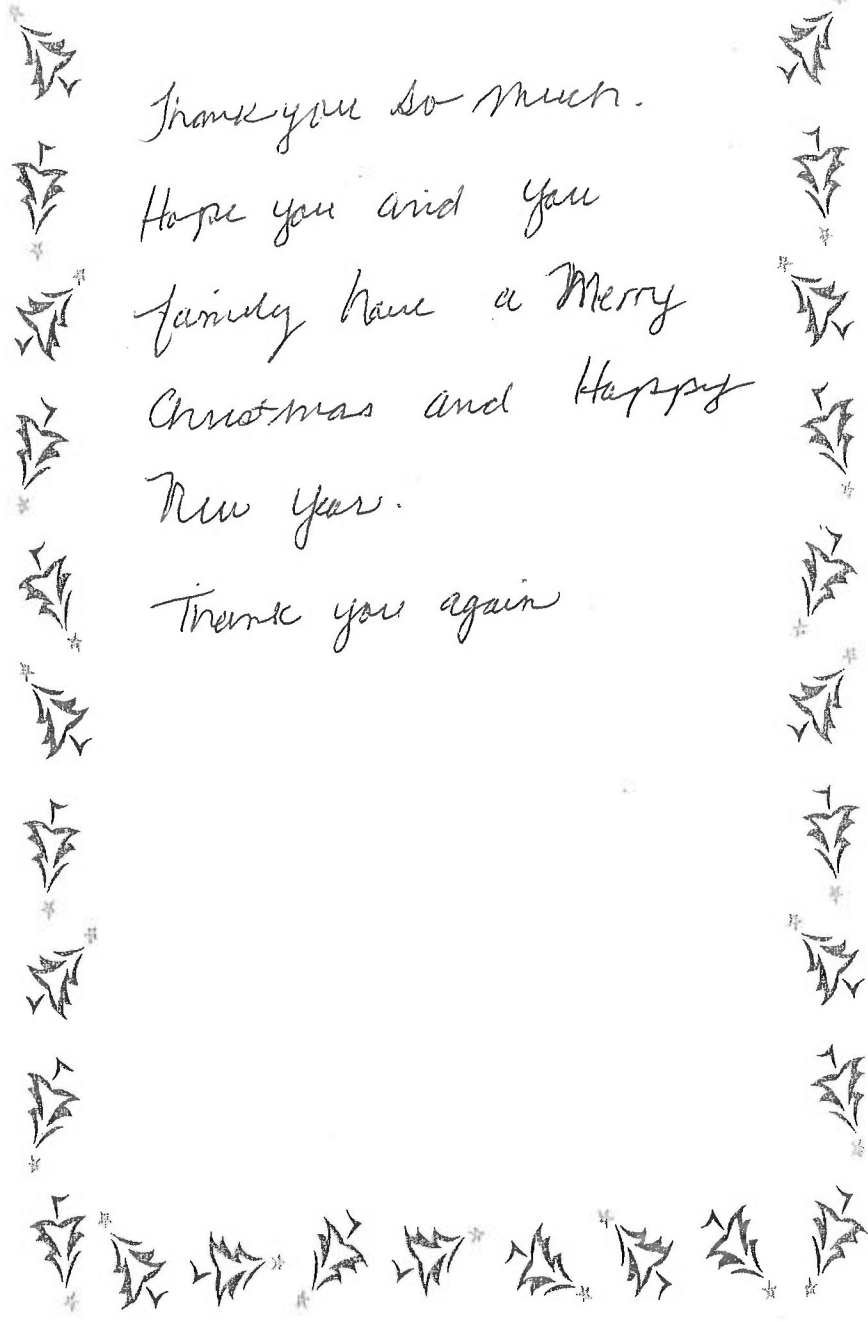 Thank you so much.
Hope you and you
family have a Merry
Christmas and Happy
New Year.
Thank you again